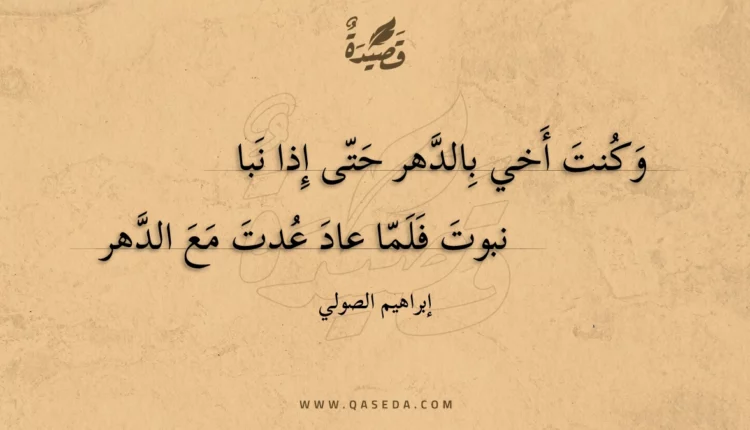 قَصِيْدَةٌ
وَكُنتَ أَخي بِالدَّهر حَتّى إِذا نَبا
نبوتَ فَلَمّا عادَ عُدتَ مَعَ الدَّهر
إبراهيم الصولي
WWW.QASEDA.COM